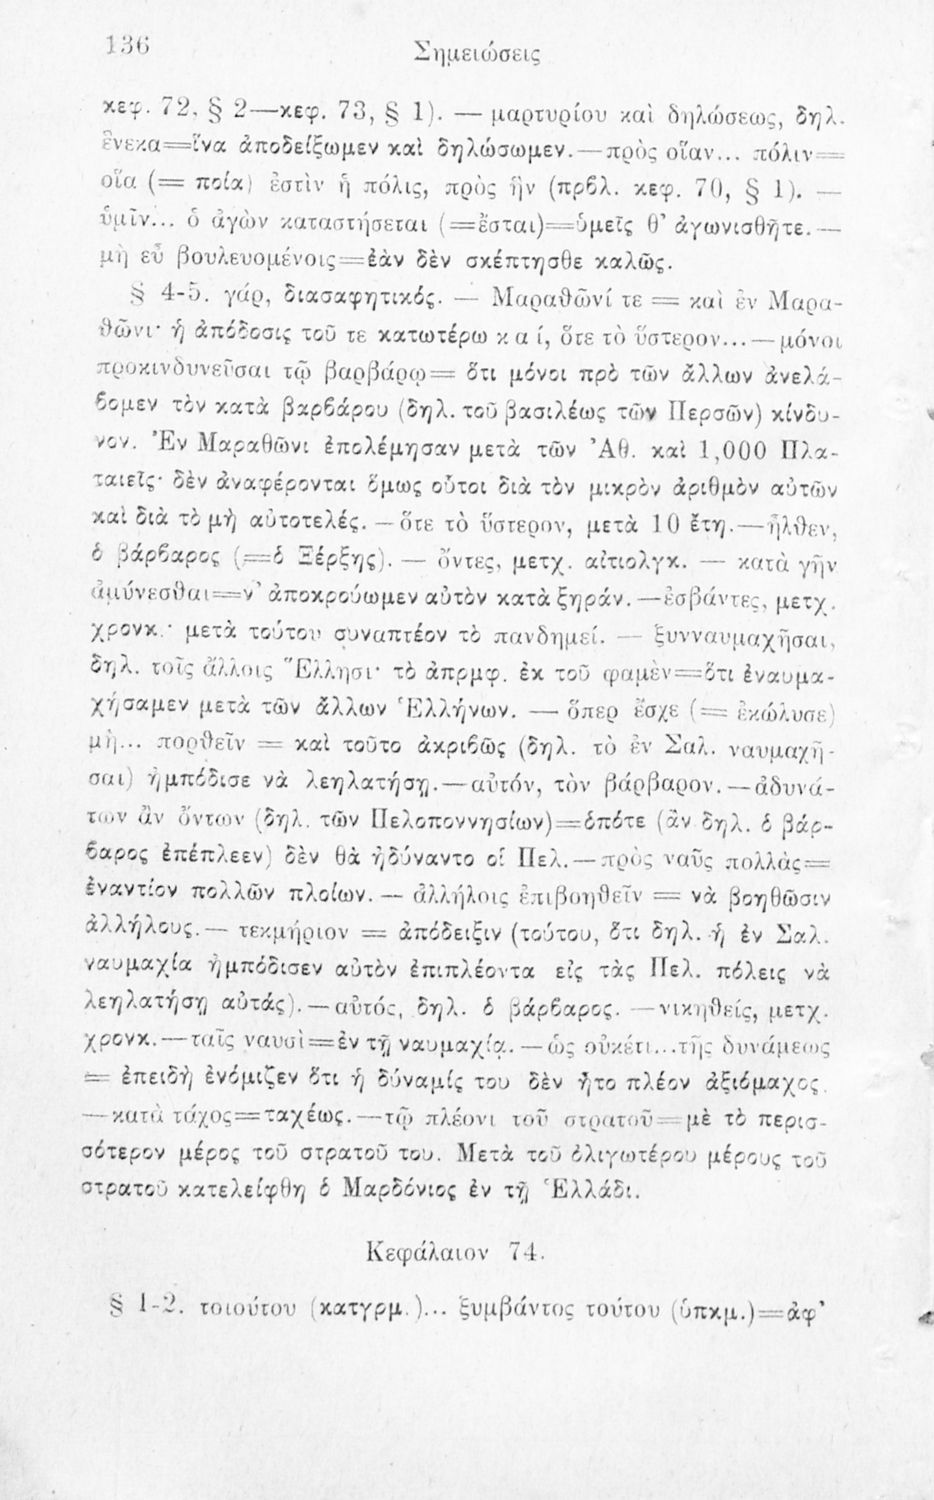 136
Σημειώσεις
κεφ. 72, § 2—κεφ. 73, § 1). — μαρτυρίου καὶ δηλώσεως, δηλ.
ἕνεκα=ἵνα ἀποδείξωμεν καὶ δηλώσωμεν.—πρὸς οἵαν... πόλιν=
οἵα (= ποία) ἐστὶν ἡ πόλις, πρὸς ἣν (πρβλ. κεφ. 70, § 1). —
ὑμῖν... ὁ ἀγὼν καταστήσεται (=ἔσται)=ὑμεῖς θ’ ἀγωνισθῆτε.—
μὴ εὖ βουλευομένοις=ἐὰν δὲν σκέπτησθε καλῶς.
§ 4-5. γάρ, διασαφητικός. — Μαραθῶνί τε = καὶ ἐν Μαρα-
θῶνι· ἡ ἀπόδοσις τοῦ τε κατωτέρω κ α ί, ὅτε τὸ ὕστερον...—μόνοι
προκινδυνεῦσαι τῷ βαρβάρῳ= ὅτι μόνοι πρὸ τῶν ἄλλων ἀνελά-
βομεν τὸν κατὰ βαρβάρου (δηλ. τοῦ βασιλέως τῶν Περσῶν) κίνδυ-
νον. Ἐν Μαραθῶνι ἐπολέμησαν μετὰ τῶν Ἀθ. καὶ 1,000 Πλα-
ταιεῖς· δὲν ἀναφέρονται ὅμως οὗτοι διὰ τὸν μικρὸν ἀριθμὸν αὐτῶν
καὶ διὰ τὸ μὴ αὐτοτελές. — ὅτε τὸ ὕστερον, μετὰ 10 ἔτη.—ἦλθεν,
ὁ βάρβαρος (=ὁ Ξέρξης). — ὄντες, μετχ. αἰτιολγκ. — κατὰ γῆν
ἀμύνεσθαι=ν’ ἀποκρούωμεν αὐτὸν κατὰ ξηράν. —ἐσβάντες, μετχ.
χρονκ.· μετὰ τούτου συναπτέον τὸ πανδημεί. — ξυνναυμαχῆσαι,
δηλ. τοῖς ἄλλοις Ἕλλησι· τὸ ἀπρμφ. ἐκ τοῦ φαμὲν=ὅτι ἐναυμα-
χήσαμεν μετὰ τῶν ἄλλων Ἑλλήνων. — ὅπερ ἔσχε (= ἐκώλυσε)
μὴ... πορθεῖν = καὶ τοῦτο ἀκριβῶς (δηλ. τὸ ἐν Σαλ. ναυμαχῆ-
σαι) ἠμπόδισε νὰ λεηλατήσῃ.—αὐτόν, τὸν βάρβαρον.—ἀδυνά-
των ἂν ὄντων (δηλ. τῶν Πελοποννησίων)=ὁπότε (ἂν δηλ. ὁ βάρ-
βαρος ἐπέπλεεν) δὲν θὰ ἠδύναντο οἱ Πελ.—πρὸς ναῦς πολλὰς=
ἐναντίον πολλῶν πλοίων. — ἀλλήλοις ἐπιβοηθεῖν = νὰ βοηθῶσιν
ἀλλήλους.— τεκμήριον = ἀπόδειξιν (τούτου, ὅτι δηλ. ἡ ἐν Σαλ.
ναυμαχία ἠμπόδισεν αὐτὸν ἐπιπλέοντα εἰς τὰς Πελ. πόλεις νὰ
λεηλατήσῃ αὐτάς).—αὐτός, δηλ. ὁ βάρβαρος. —νικηθείς, μετχ.
χρονκ.—ταῖς ναυσὶ=ἐν τῇ ναυμαχίᾳ.—ὡς οὐκέτι...τῆς δυνάμεως
= ἐπειδὴ ἐνόμιζεν ὅτι ἡ δύναμίς του δὲν ἦτο πλέον ἀξιόμαχος.
—κατὰ τάχος=ταχέως.—τῷ πλέονι τοῦ στρατοῦ=μὲ τὸ περισ-
σότερον μέρος τοῦ στρατοῦ του. Μετὰ τοῦ ὀλιγωτέρου μέρους τοῦ
στρατοῦ κατελείφθη ὁ Μαρδόνιος ἐν τῇ Ἑλλάδι.
Κεφάλαιον 74.
§ 1-2. τοιούτου (κατγρμ.)... ξυμβάντος τούτου (ὑπκμ.)=ἀφ’